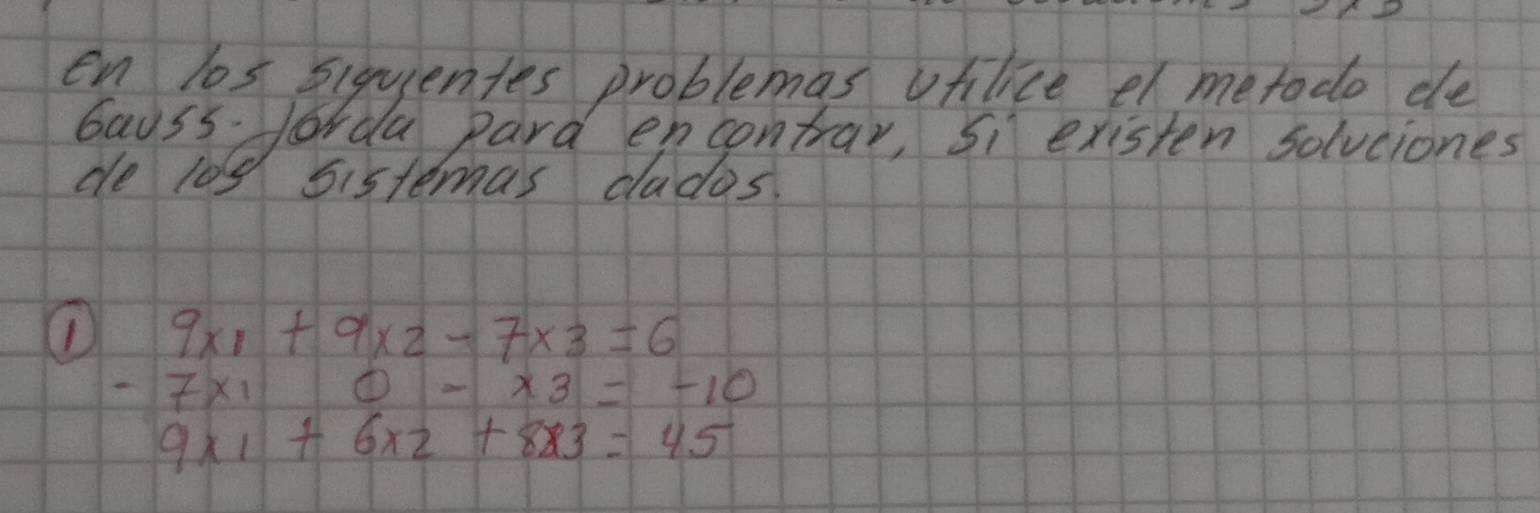 En los siguientes problemas utilice el metodo de
Gauss-Jorda para encontrar, si existen soluciones
de los sistemas dados.
① 9x1 + 9x2 - 7x3 = 6
- 7x1 0 - x3 = -10
9x1 + 6x2 + 8x3 = 45